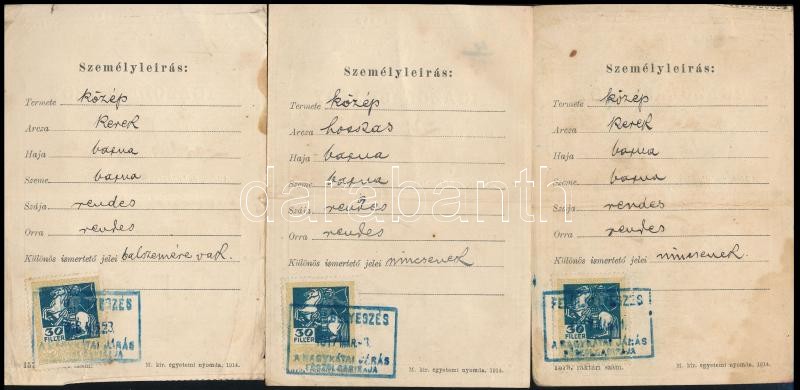 Személyleírás:
Termete közép
Arcza kerek
Haja barna
Szeme barna
Szája rendes
Orra rendes
Különös ismertető jelei balszemére vak.
30
FILLÉR
M. kir. egyetemi nyomda, 1914.
Személyleírás:
Termete közép
Arcza hosszas
Haja barna
Szeme barna
Szája rendes
Orra rendes
Különös ismertető jelei nincsenek
30
FILLÉR
A NAGYKÁTAI JÁRÁS
FŐSZOLGABIRÁJA
M. kir. egyetemi nyomda, 1914.
Személyleírás:
Termete közép
Arcza kerek
Haja barna
Szeme barna
Szája rendes
Orra rendes
Különös ismertető jelei nincsenek.
30
FILLÉR
A NAGYKÁTAI JÁRÁS
FŐSZOLGABIRÁJA
raktári szám.
M. kir. egyetemi nyomda, 1914.
darabanth